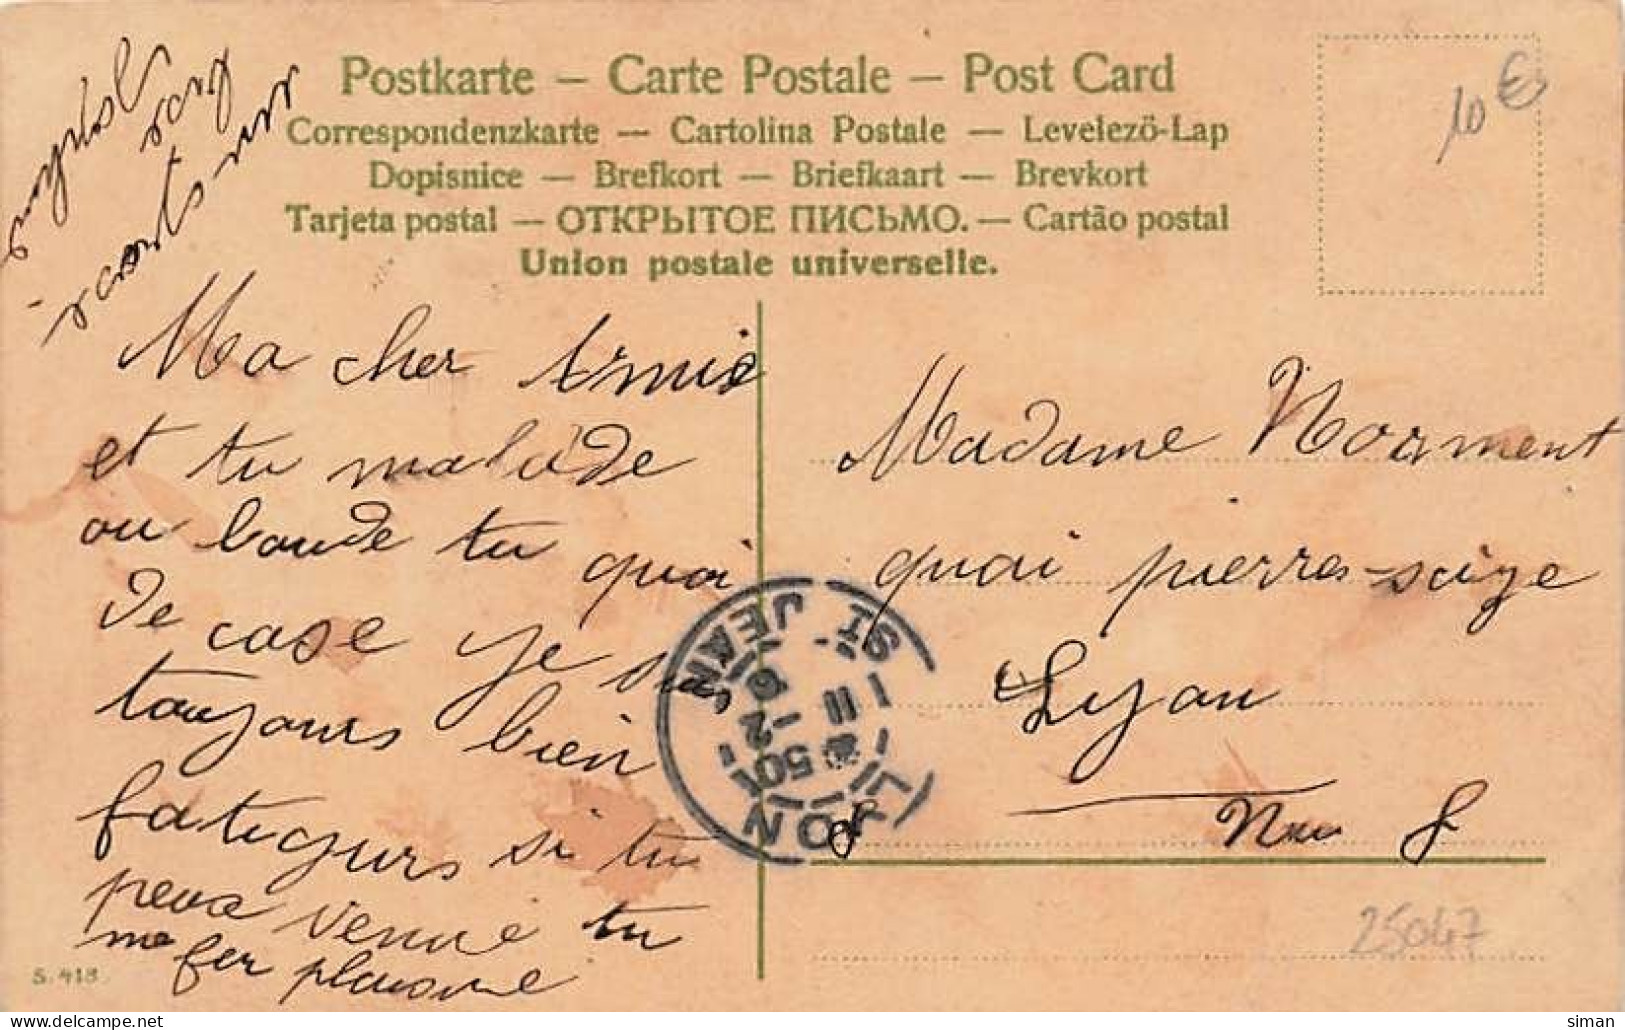 Postkarte — Carte Postale — Post Card
Correspondenzkarte — Cartolina Postale — Levelezö-Lap
Dopisnice — Brefkort — Briefkaart — Brevkort
Tarjeta postal — ОТКРЫТОЕ ПИСЬМО. — Cartão postal
Union postale universelle.
10 €
Ma cher Amie
et tu malade
ou boude tu quoi
De case je suis
toujours bien
fatigurs si tu
peux venire tu
me fer plaisire
S. 418
LYON
ST JEAN
11 50
Madame Norment
quai pierres-scize
Lyon
No 8
25047
siman